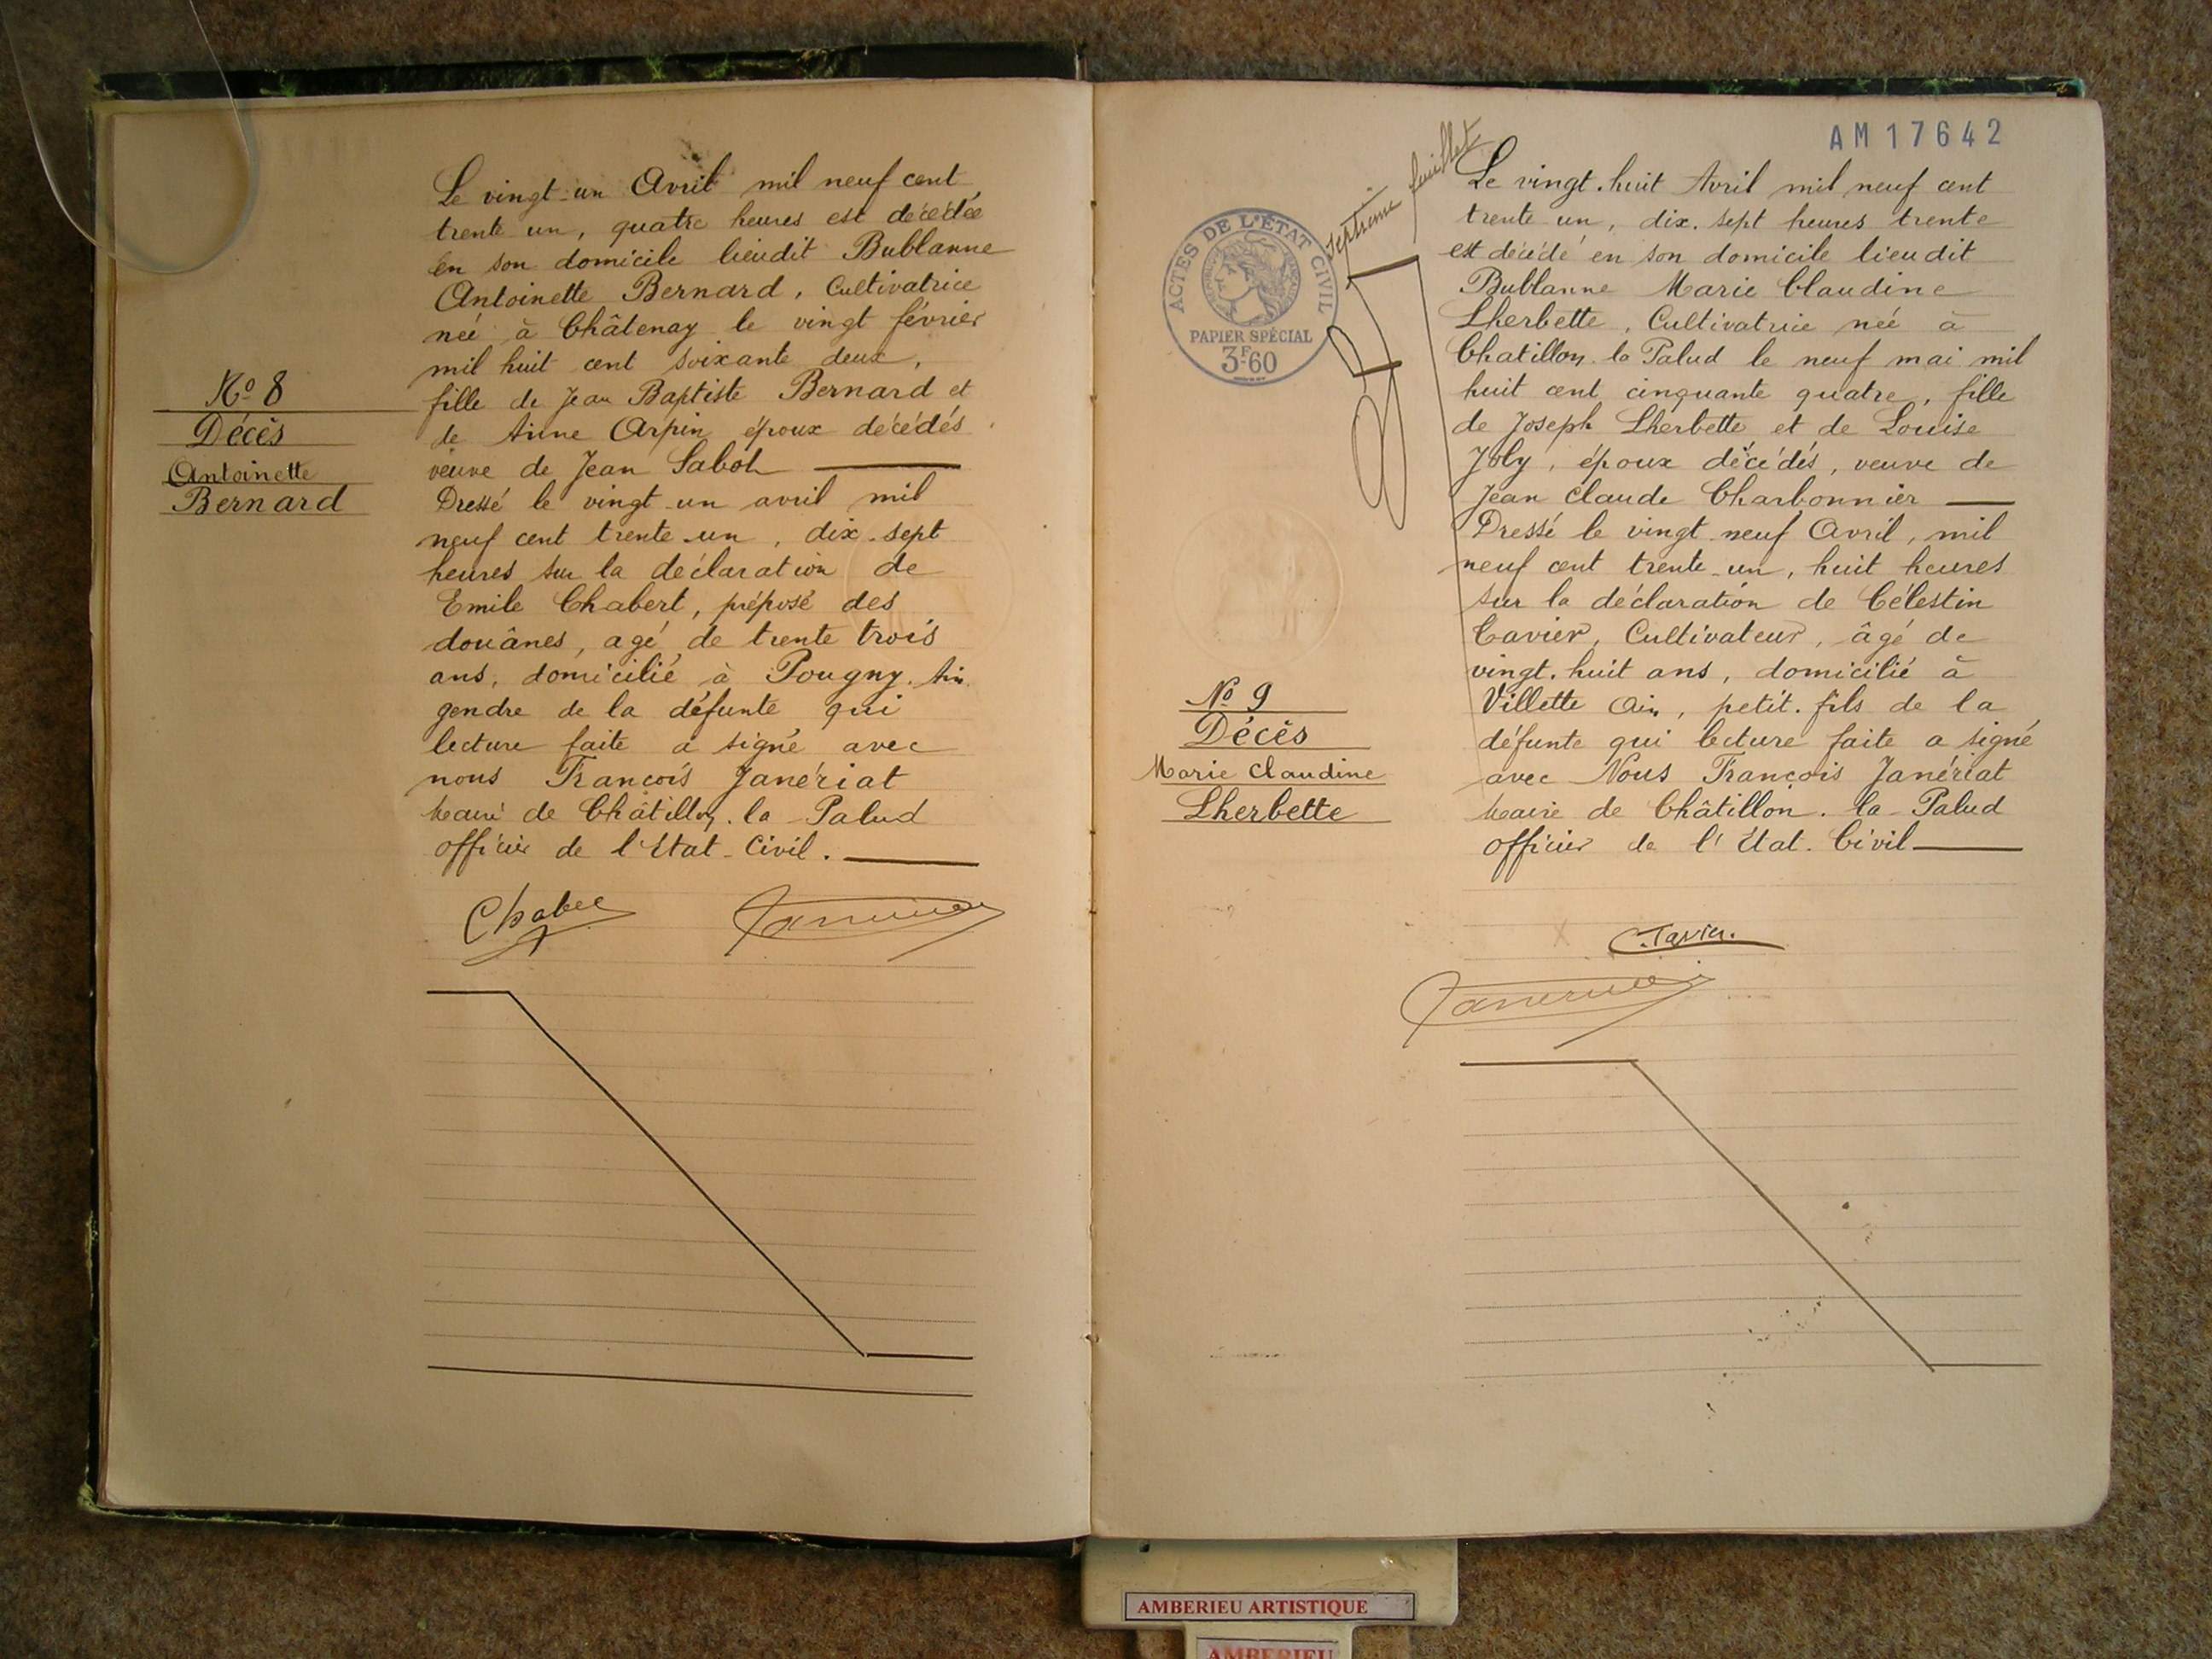 Le vingt-un Avril mil neuf cent
trente un, quatre heures est décédée
en son domicile lieudit Bublanne
Antoinette Bernard, Cultivatrice
née à Châtenay le vingt février
mil huit cent soixante deux,
fille de Jean Baptiste Bernard et
de Anne Arpin époux décédés
veuve de Jean Saboh
Dressé le vingt-un avril mil
neuf cent trente-un, dix-sept
heures sur la déclaration de
Emile Chabert, préposé des
douânes, agé de trente trois
ans, domicilié à Pougny. Ain.
gendre de la défunte qui
lecture faite a signé avec
nous François Janériat
Maire de Châtillon-la-Palud
officier de l'Etat-Civil.
No 8
Décès
Antoinette
Bernard
AM17642
septième feuillet
ACTES DE L'ÉTAT CIVIL
PAPIER SPÉCIAL
3F60
Le vingt-huit Avril mil neuf cent
trente un, dix-sept heures trente
est décédé en son domicile lieudit
Bublanne Marie Claudine
Lherbette, Cultivatrice née à
Chatillon-la Palud le neuf mai mil
huit cent cinquante quatre, fille
de Joseph Lherbette et de Louise
Joly, époux décédés, veuve de
Jean Claude Charbonnier
Dressé le vingt-neuf Avril, mil
neuf cent trente-un, huit heures
sur la déclaration de Célestin
Tavier, Cultivateur, âgé de
vingt-huit ans, domicilié à
Villette Ain, petit-fils de la
défunte qui lecture faite a signé
avec Nous François Janériat
Maire de Châtillon-la-Palud
officier de l'Etat-Civil
No 9
Décès
Marie Claudine
Lherbette
C. Tavier.
AMBERIEU ARTISTIQUE
AMBERIEU